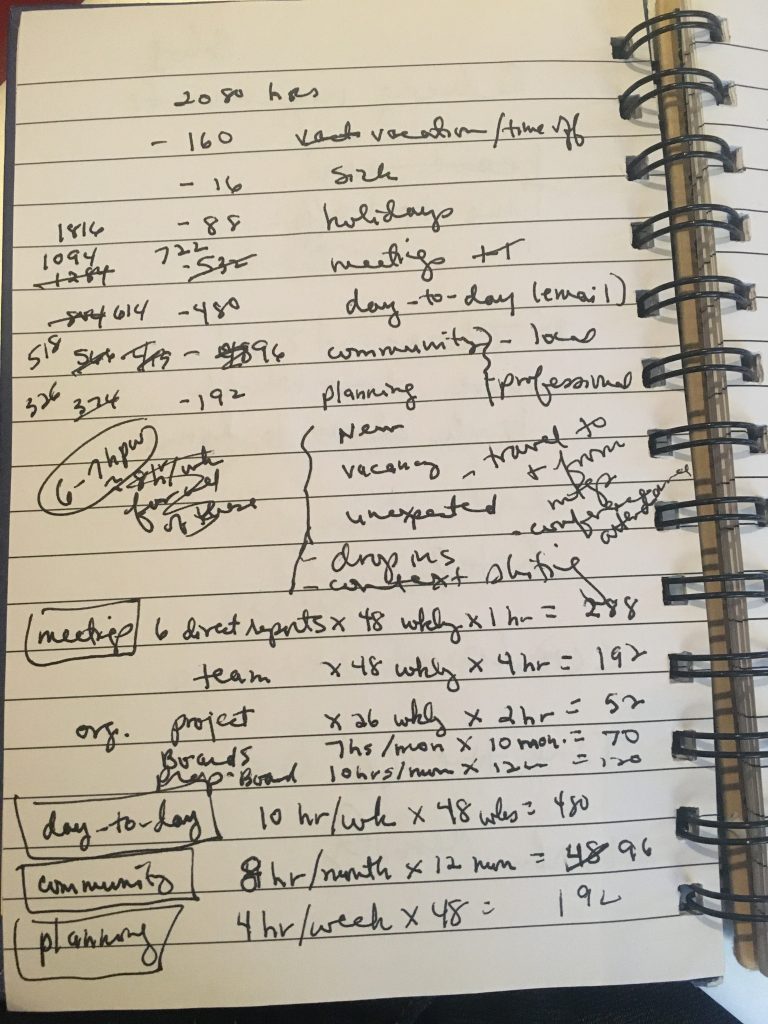 2080 hrs
- 160 vacation/time off
- 16 sick
1816 - 88 holidays
1094 722
1284 - 532 meetings ++
614 - 480 day-to-day (email)
518 - 96 community - local
326 374 - 192 planning - professional
6-7 hpw New
≈ 8 hr/wk vacancy - travel to
for all + from
of these unexpected mtgs
- conference
attendance
- drop ins
- context shifting
meetings 6 direct reports x 48 wkly x 1 hr = 288
team x 48 wkly x 4 hr = 192
org. project x 26 wkly x 2 hr = 52
Boards 7hs/mon x 10 mon. = 70
prep-Board 10hrs/mon x 12 = 120
day-to-day 10 hr/wk x 48 wks = 480
community 8 hr/month x 12 mon = 48 96
planning 4 hr/week x 48 = 192